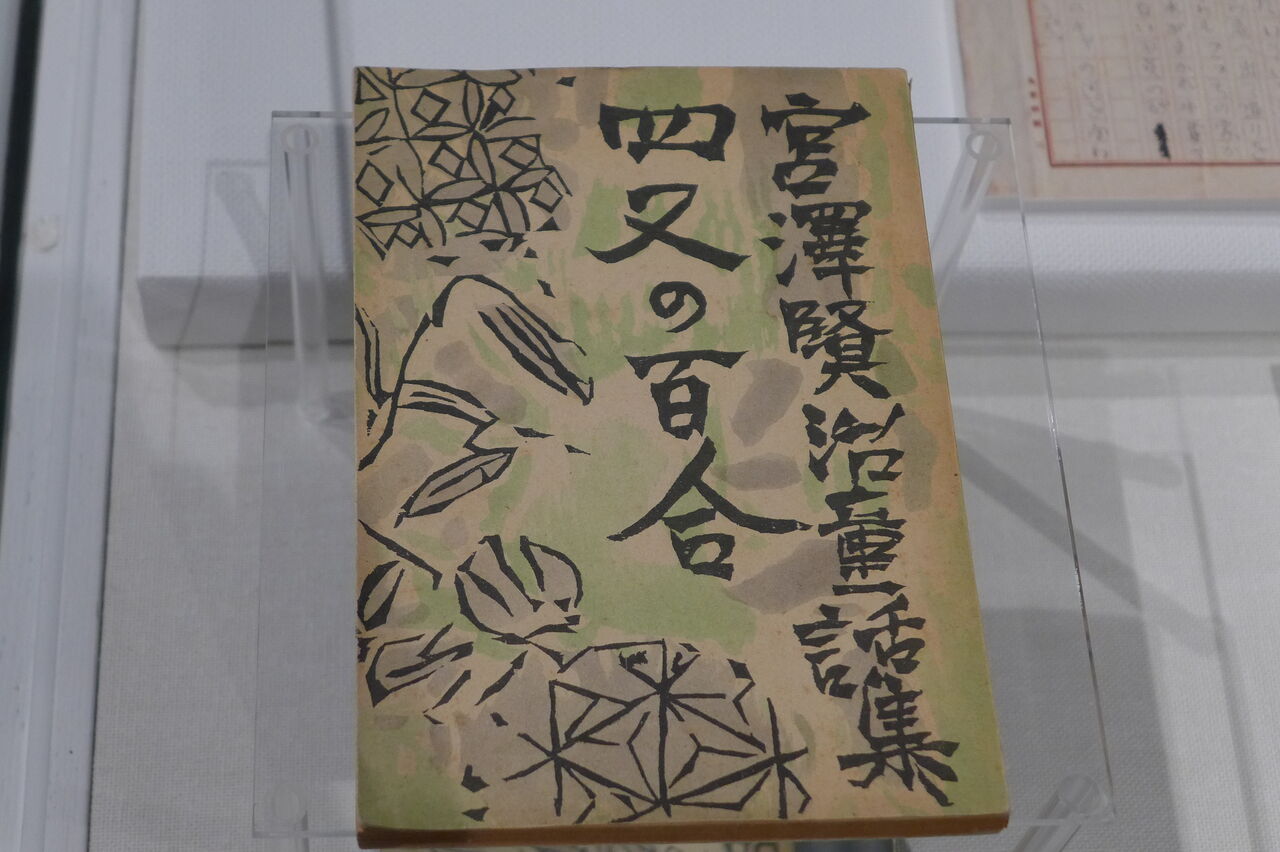 宮澤賢治童話集
四又の百合